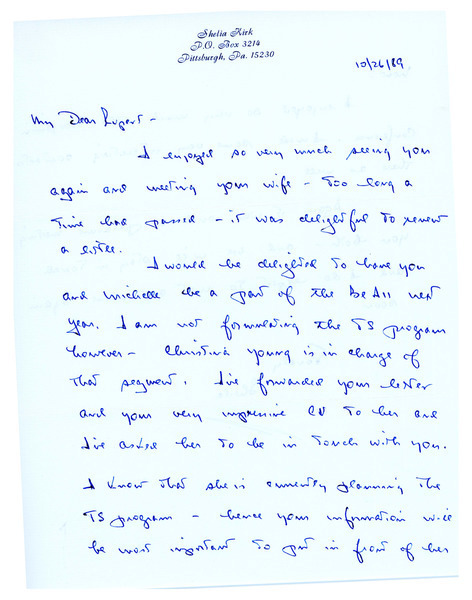 Shelia Kirk
P.O. Box 3214
Pittsburgh, Pa. 15230
10/26/89
My Dear Rupert -
I enjoyed so very much seeing you
again and meeting your wife - too long a
time has passed - it was delightful to renew
a little.
I would be delighted to have you
and Michelle be a part of the Be All next
year. I am not formulating the TS program
however - Christina Young is in charge of
that segment. I've forwarded your letter
and your very impressive CV to her and
I've asked her to be in touch with you.
I know that she is currently planning the
TS program - hence your information will
be most important to put in front of her